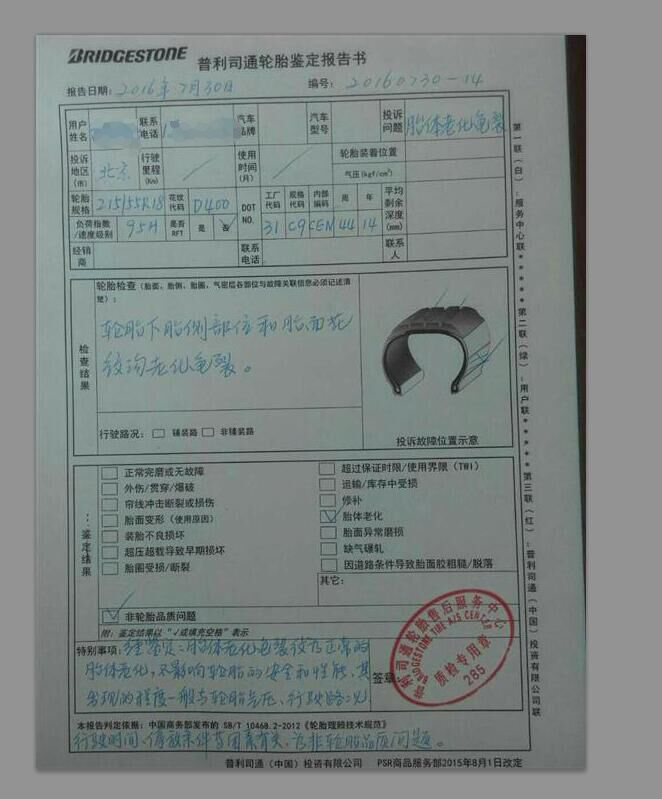 BRIDGESTONE 普利司通轮胎鉴定报告书
报告日期：2016年7月30日 编号：20160730-14
用户姓名 联系电话 汽车品牌 汽车型号 投诉问题 胎体老化龟裂
投诉地区(市) 北京 行驶里程(Km) 使用时间(月) 轮胎装着位置
气压(kgf/cm²)
轮胎规格 215/55R18 花纹代码 D400 DOT NO. 工厂代码 规格代码 内部编码 周 年 平均剩余深度(mm)
负荷指数/速度级别 95H 是否RFT 是 否 31 C9 CEN 44 14
经销商 联系电话 联系人
检查结果
轮胎检查（胎面、胎侧、胎圈、气密层各部位与故障关联信息必须记述清楚）：
轮胎下胎侧部位和胎面花
纹沟老化龟裂。
行驶路况： 铺装路 非铺装路
投诉故障位置示意
鉴定结果
正常完磨或无故障
外伤/贯穿/爆破
帘线冲击断裂或损伤
胎面变形（使用原因）
装胎不良损坏
超压超载导致早期损坏
胎圈受损/断裂
超过保证时限/使用界限（TWI）
运输/库存中受损
修补
胎体老化
胎面异常磨损
缺气碾轧
因道路条件导致胎面胶粗糙/脱落
其它：
非轮胎品质问题
附：鉴定结果以"√或填充空格"表示
特别事项：经鉴定：胎体老化龟裂较为正常的
胎体老化，不影响轮胎的安全和性能，其
出现的程度一般与轮胎气压，行驶路况
签章：
普利司通轮胎售后服务中心
BRIDGESTONE TIRE A/S CENTER
质检专用章
285
本报告判定依据：中国商务部发布的 SB/T 10468.2-2012《轮胎理赔技术规范》
行驶时间、停放条件等因素有关，为非轮胎品质问题。
普利司通（中国）投资有限公司 PSR商品服务部2015年8月1日改定
第一联（白）：服务中心联*****第二联（绿）：用户联*****第三联（红）：普利司通（中国）投资有限公司联